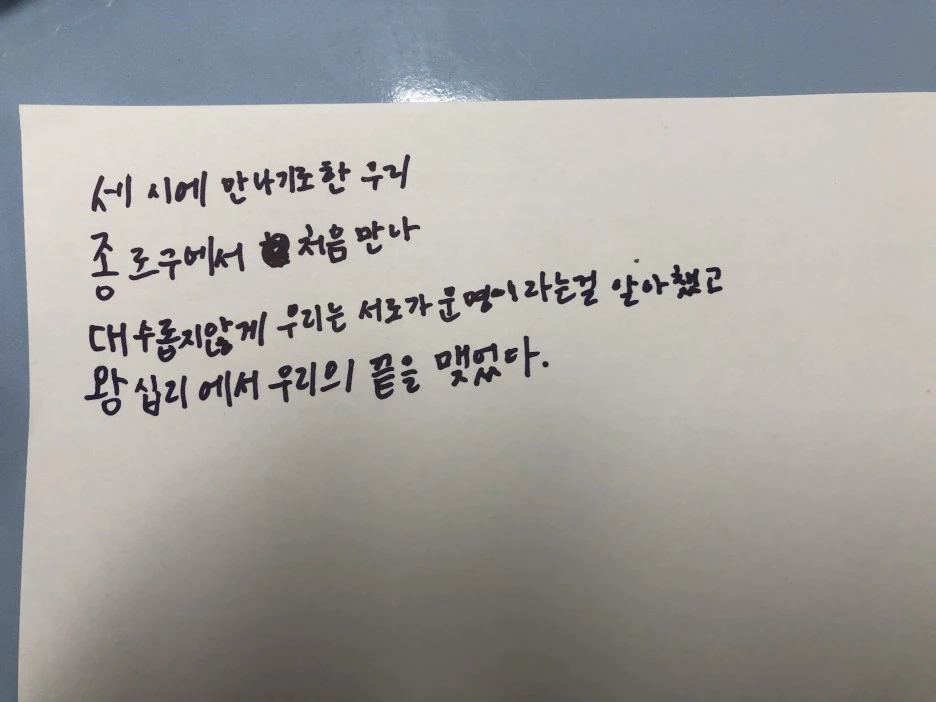 세 시에 만나기로한 우리
종로구에서 처음 만나
대수롭지않게 우리는 서로가 운명이라는걸 알아챘고
왕십리에서 우리의 끝을 맺었다.